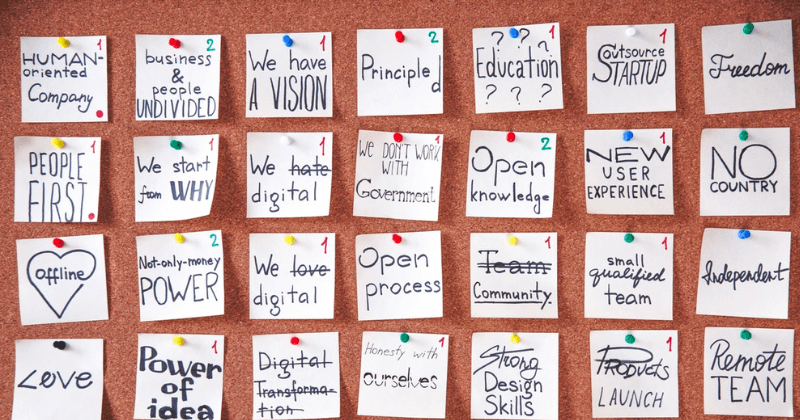 1
HUMAN-
oriented
Company
2
business
&
people
UNDIVIDED
1
We have
A VISION
2
Principled
1
? ? ?
Education
? ? ?
1
Outsource
STARTUP
Freedom
1
PEOPLE
FIRST
1
We start
from WHY
1
We hate
digital
1
WE DON'T WORK
WITH
Government
2
Open
knowledge
1
NEW
USER
EXPERIENCE
NO
COUNTRY
offline
2
Not-only-money
POWER
1
We love
digital
Open
process
1
Team
Community
1
small
qualified
team
Independent
Love
1
Power
of
idea
1
Digital
Transforma-
tion
1
Honesty with
ourselves
Strong
Design
Skills
1
Products
LAUNCH
Remote
TEAM